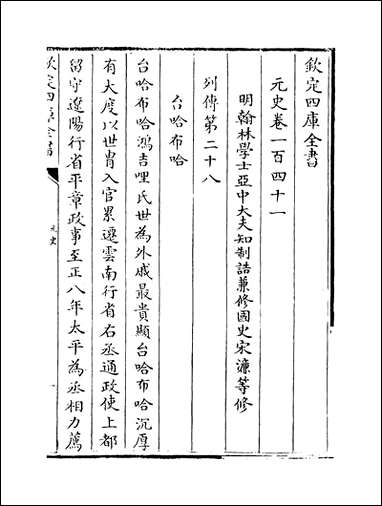 欽定四庫全書
元史卷一百四十一
明翰林學士亞中大夫知制誥兼修國史宋濂等修
列傳第二十八
台哈布哈
台哈布哈鴻吉哩氏世為外戚最貴顯台哈布哈沉厚
有大度以世胄入官累遷雲南行省右丞通政使上都
留守遼陽行省平章政事至正八年太平為丞相力薦
欽定四庫全書
元史
一